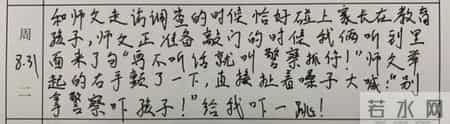 周
8.31
二
和师父走访调查的时候恰好碰上家长在教育
孩子，师父正准备敲门的时候我俩听到里
面来了句"再不听话就叫警察抓你！"师父举
起的右手顿了一下，直接扯着嗓子大喊："别
拿警察吓孩子！"给我吓一跳！
若水网